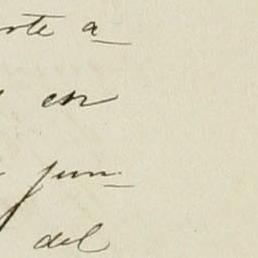 rte a
en
jun-
del